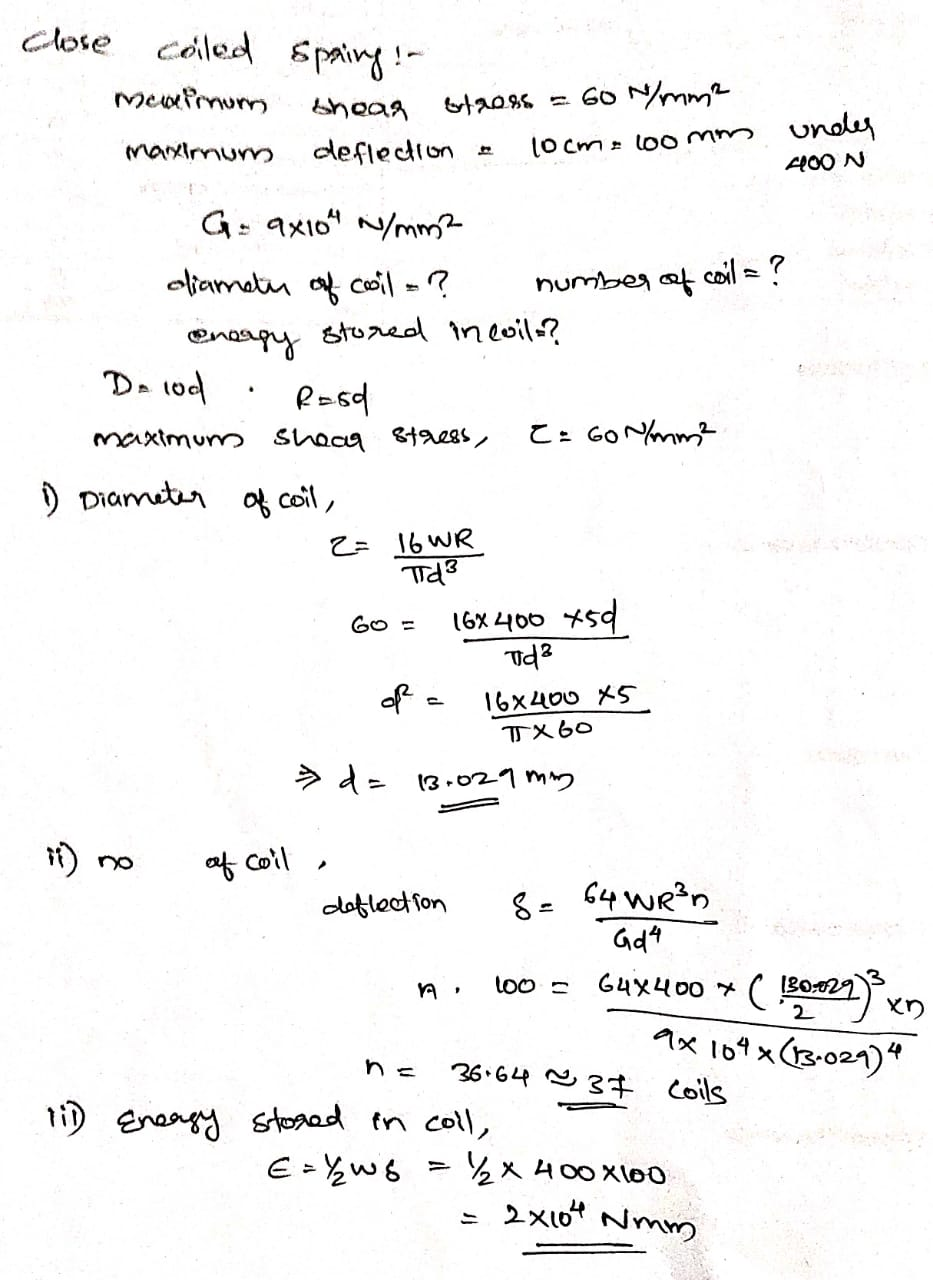 Close coiled Spring :-
Maximum shear stress = 60 N/mm²
maximum deflection = 10cm = 100 mm under
400 N
G = 9x10⁴ N/mm²
diameter of coil = ? number of coil = ?
energy stored in coil = ?
D = 10d . R = 5d
maximum shear stress, τ = 60 N/mm²
i) Diameter of coil,
τ = 16WR / πd³
60 = 16x400 x5d / πd³
d² = 16x400 x5 / πx60
⇒ d = 13.029 mm
ii) no of coil,
deflection δ = 64WR³n / Gd⁴
100 = 64x400 x (130.029 / 2)³ xn / 9x10⁴x(13.029)⁴
n = 36.64 ≈ 37 coils
iii) Energy stored in coil,
E = ½Wδ = ½ x 400x100
= 2x10⁴ Nmm